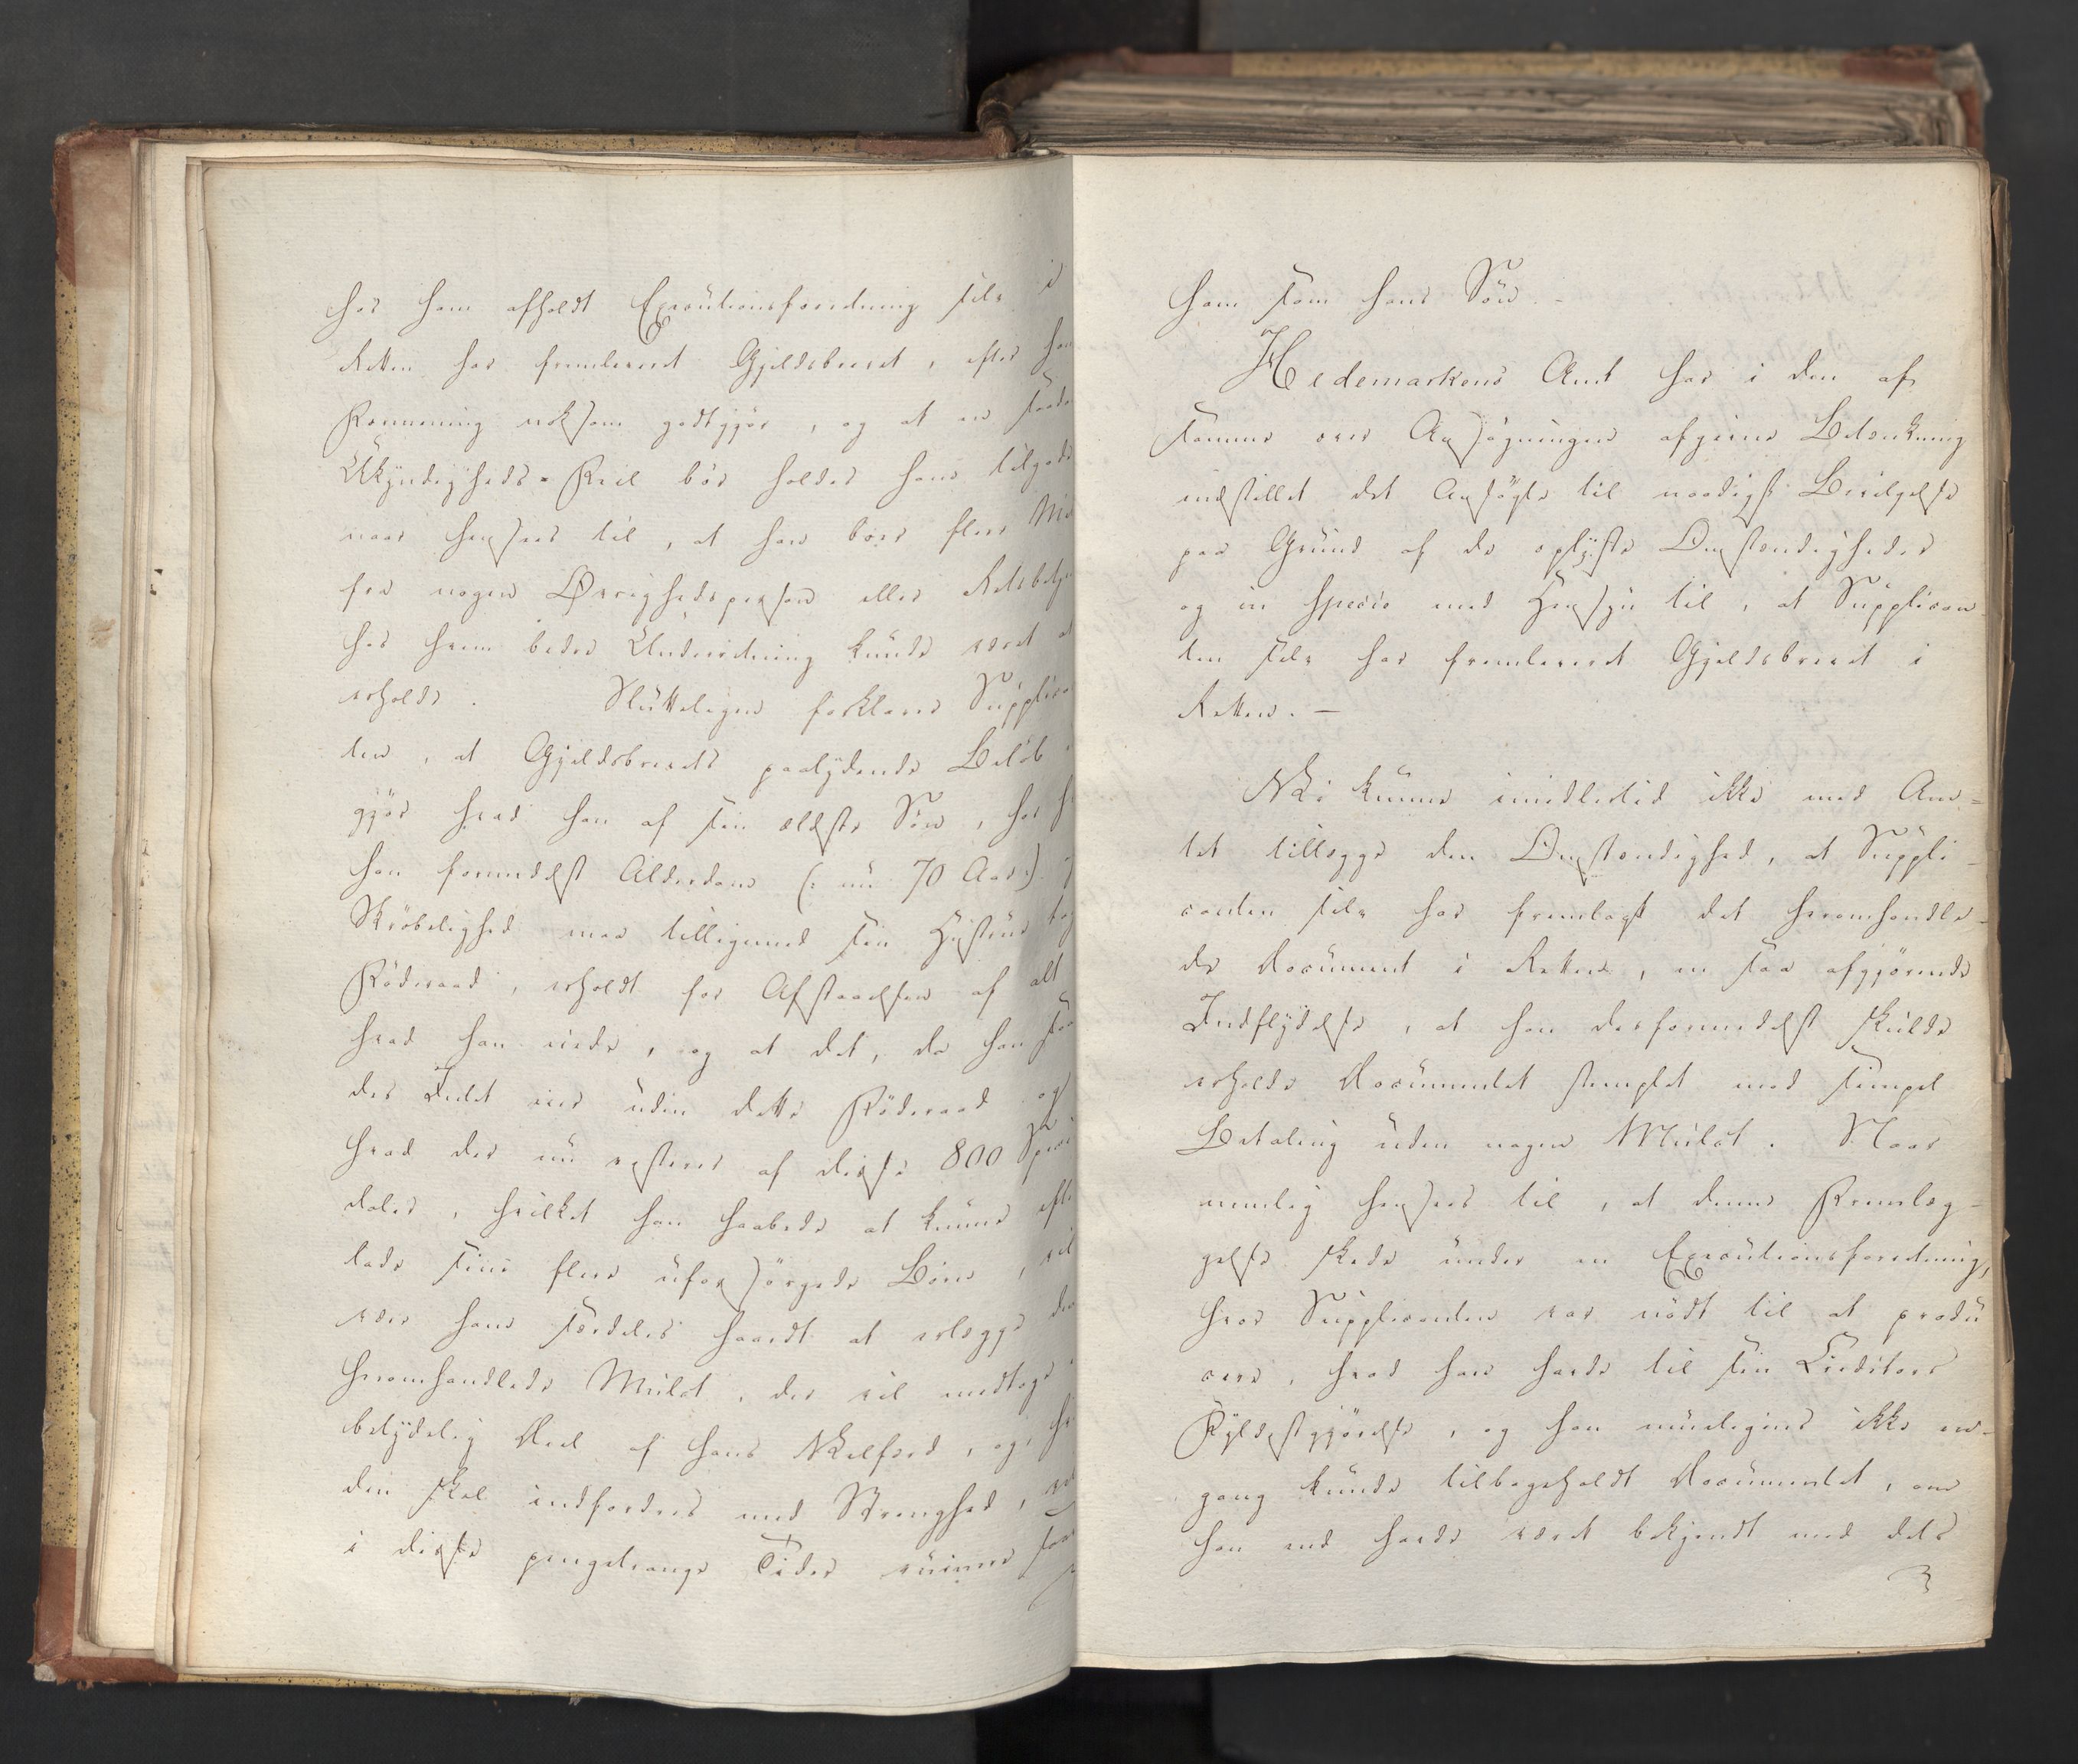 hos ham afholdt Executionsforretning selv i
Retten har fremleveret Gjeldsbrevet, efter hans
Formening noksom godtgjør, og at en saadan
Ukyndigheds-Feil bør holdes ham tilgode
naar hensees til, at han boer flere Mile
fra nogen Øvrighedsperson eller Retsbetjent
hos hvem bedre Underretning kunde været at
erholde. Slutteligen forklarer Supplican
ten, at Gjeldsbrevets paalydende Beløb
gjør hvad han af sin ældste Søn, hos
han formedelst Alderdom (: nu 70 Aar:) og
Skrøbelighed maa tilligemed sin Hustrue
Föderaad, erholdt for Afstaaelsen af alt
hvad han eiede, og at det, da han
der Intet eier uden dette Föderaad og
hvad der nu resterer af disse 800 Specie
daler, hvilket han haabede at kunne efter
lade sine flere uforsørgede Børn, vil
være ham særdeles haardt at erlægge den
heromhandlede Mulct, der vil medtage
betydelig Deel af hans Velfærd, og,
den skal indfordres med Strenghed,
i disse pengetrange Tider ruinere saa
ham som hans Søn. -
Hedemarkens Amt har i den af
samme over Ansøgningen afgivne Betænkning
indstillet det Ansøgte til naadigst Bevilgelse
paa Grund af de oplyste Omstændigheder
og in specie med Hensyn til, at Supplican
ten selv har fremleveret Gjeldsbrevet i
Retten. -
Vi kunne imidlertid ikke med Am-
tet tillægge den Omstændighed, at Suppli-
canten selv har fremlagt det heromhandle-
de Document i Retten, en saa afgjørende
Indflydelse, at han derformedelst skulde
erholde Documentet stemplet med simpel
Betaling uden nogen Mulct. Naar
nemlig hensees til, at denne Fremlæg-
gelse skede under en Executionsforretning,
hvor Supplicanten var nødt til at produ
cere, hvad han havde til sin Creditors
Fyldestgjørelse, og han rimeligviis ikke en-
gang kunde tilbageholdt Documentet, om
han end havde været bekjendt med dets